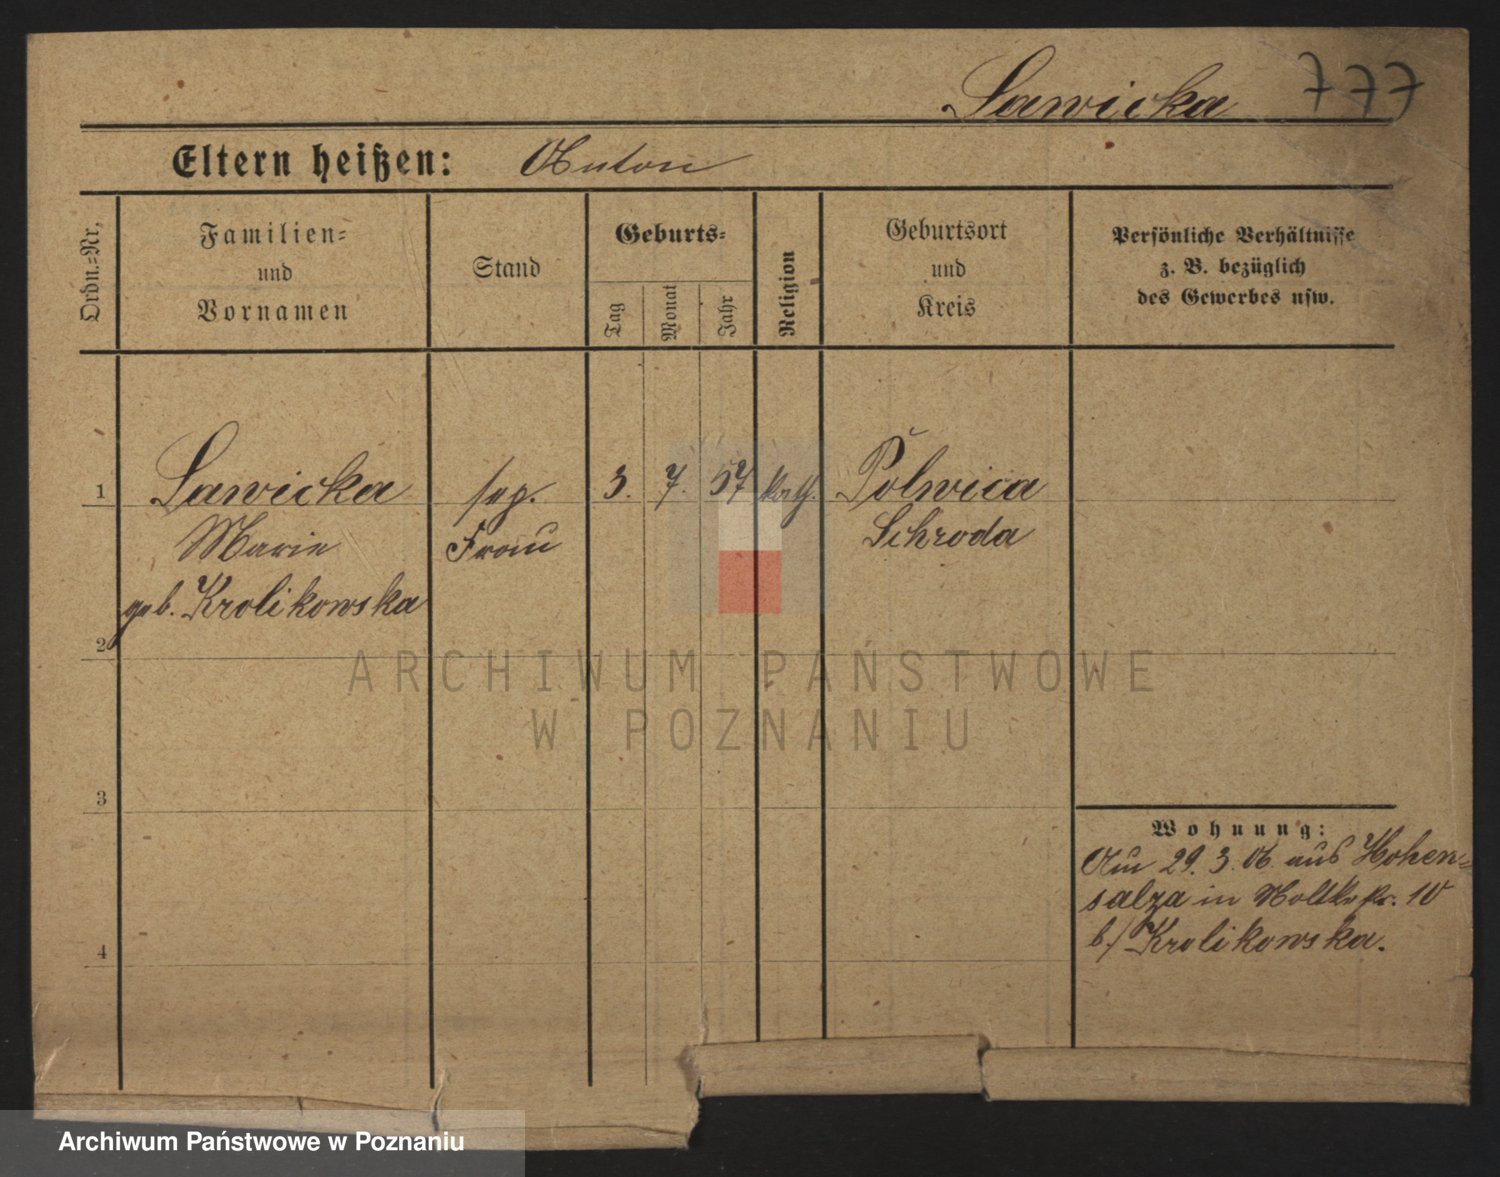 Sawicka 777
Eltern heißen: Anton
Ordn.-Nr.
Familien-
und
Vornamen
Stand
Geburts-
Tag
Monat
Jahr
Religion
Geburtsort
und
Kreis
Persönliche Verhältnisse
z. B. bezüglich
des Gewerbes usw.
1 Sawicka sep. 3. 7. 57 kath. Polwica
Marie Frau Schroda
geb. Krolikowska
2
3
4
Wohnung:
Am 29. 3. 06 aus Hohen-
salza in Moltkestr. 10
b./ Krolikowska.
ARCHIWUM PAŃSTWOWE
W POZNANIU
Archiwum Państwowe w Poznaniu